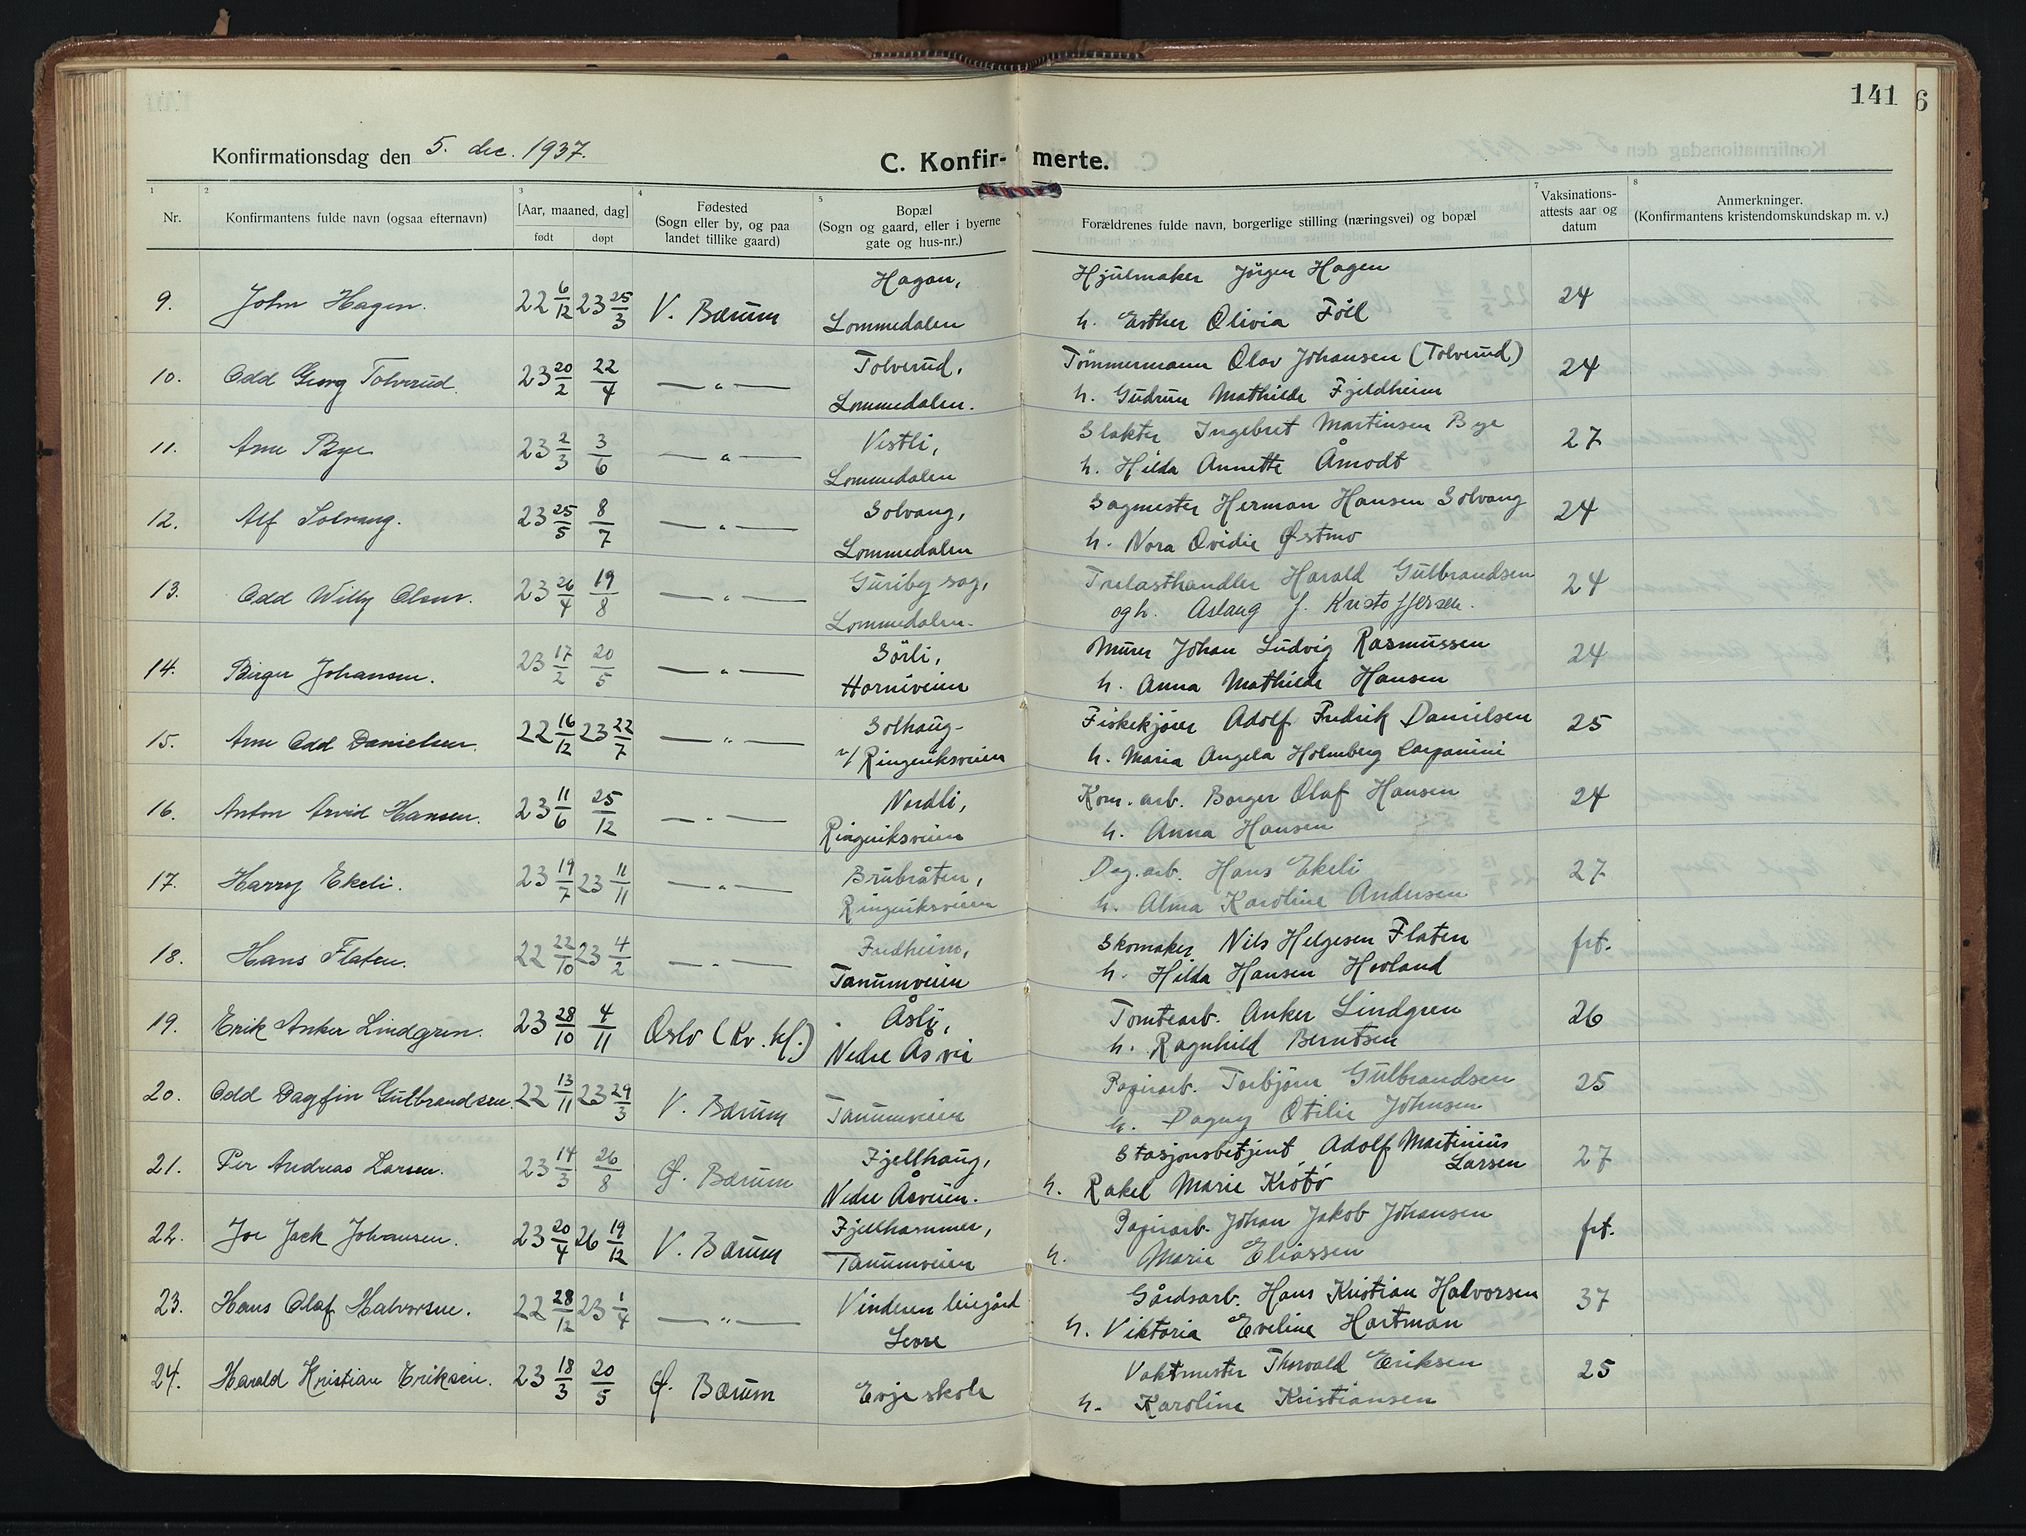 141 6
Konfirmationsdag den 5. dec. 1937.
C. Konfir- merte.
1 2 3 4 5 7 8
Nr.
Konfirmantens fulde navn (ogsaa efternavn)
[Aar, maaned, dag]
født døpt
Fødested
(Sogn eller by, og paa
landet tillike gaard)
Bopæl
(Sogn og gaard, eller i byerne
gate og hus-nr.)
Forældrenes fulde navn, borgerlige stilling (næringsvei) og bopæl
Vaksinations-
attests aar og
datum
Anmerkninger.
(Konfirmantens kristendomskundskap m. v.)
9. John Hagen. 22 6/12 23 25/3 V. Bærum Hagan, Hjulmaker Jörgen Hagen 24
Lommedalen h. Esther Olivia Föll
10. Odd Georg Tolverud. 23 20/2 22/4 — " — Tolverud, Tømmermann Olav Johansen (Tolverud) 24
Lommedalen. h. Gudrun Mathilde Fjeldheim
11. Arne Bye 23 2/3 3/6 — " — Vestli, Slakter Ingebret Martinsen Bye 27
Lommedalen h. Hilda Annette Åmodt
12. Alf Solvang. 23 25/5 8/7 — " — Solvang, Sagmester Herman Hansen Solvang 24
Lommedalen h. Nora Ovidie Østmo
13. Odd Willy Olsen. 23 26/4 19/8 — " — Guriby sag, Trelasthandler Harald Gulbrandsen 24
Lommedalen. og h. Aslaug f. Kristoffersen.
14. Birger Johansen. 23 17/2 20/5 — " — Sörli, Murer Johan Ludvig Rasmussen 24
Horniveien h. Anna Mathilde Hansen
15. Arne Odd Danielsen. 22 16/12 23 22/7 — " — Solhaug- Fiskekjörer Adolf Fredrik Danielsen 25
v/ Ringeriksveien h. Maria Angela Holmberg Carpanini
16. Anton Arvid Hansen. 23 11/6 25/12 — " — Nordli, Kom. arb. Borger Olaf Hansen 24
Ringeriksveien h. Anna Hansen
17. Harry Ekeli. 23 19/7 23 11/11 — " — Brubråten, Dag. arb. Hans Ekeli 27
Ringeriksveien h. Alma Karoline Andersen
18. Hans Flaten. 22 22/10 23 4/2 — " — Fredheim, Skomaker Nils Helgesen Flaten frt.
Tanumveien h. Hilda Hansen Hovland
19. Erik Anker Lindgren. 23 28/10 4/11 Oslo (Kv. kl.) Åsly, Tomtearb. Anker Lindgren 26
Nedre Åsvei h. Ragnhild Berntsen
20. Odd Dagfin Gulbrandsen. 22 13/11 23 29/3 V. Bærum Tanumveien Papirarb. Torbjörn Gulbrandsen 25
h. Dagny Otilie Johnsen
21. Per Andreas Larsen. 23 14/3 26/8 Ø. Bærum Fjellhaug, Stasjonsbetjent Adolf Martinius Larsen 27
Nedre Åsveien. h. Rakel Marie Krótó
22. Joe Jack Johansen. 23 20/4 26 19/12 V. Bærum Fjellhammer, Papirarb. Johan Jakob Johansen frt.
Tanumveien h. Marie Eliassen
23. Hans Olaf Halvorsen. 22 28/12 23 1/4 — " — Vinderen leiegård Gårdsarb. Hans Kristian Halvorsen 37
Levre h. Viktoria Eveline Hartman
24. Harald Kristian Eriksen. 23 18/3 20/5 Ø. Bærum Evje skole Vaktmester Thorvald Eriksen 25
h. Karoline Kristiansen